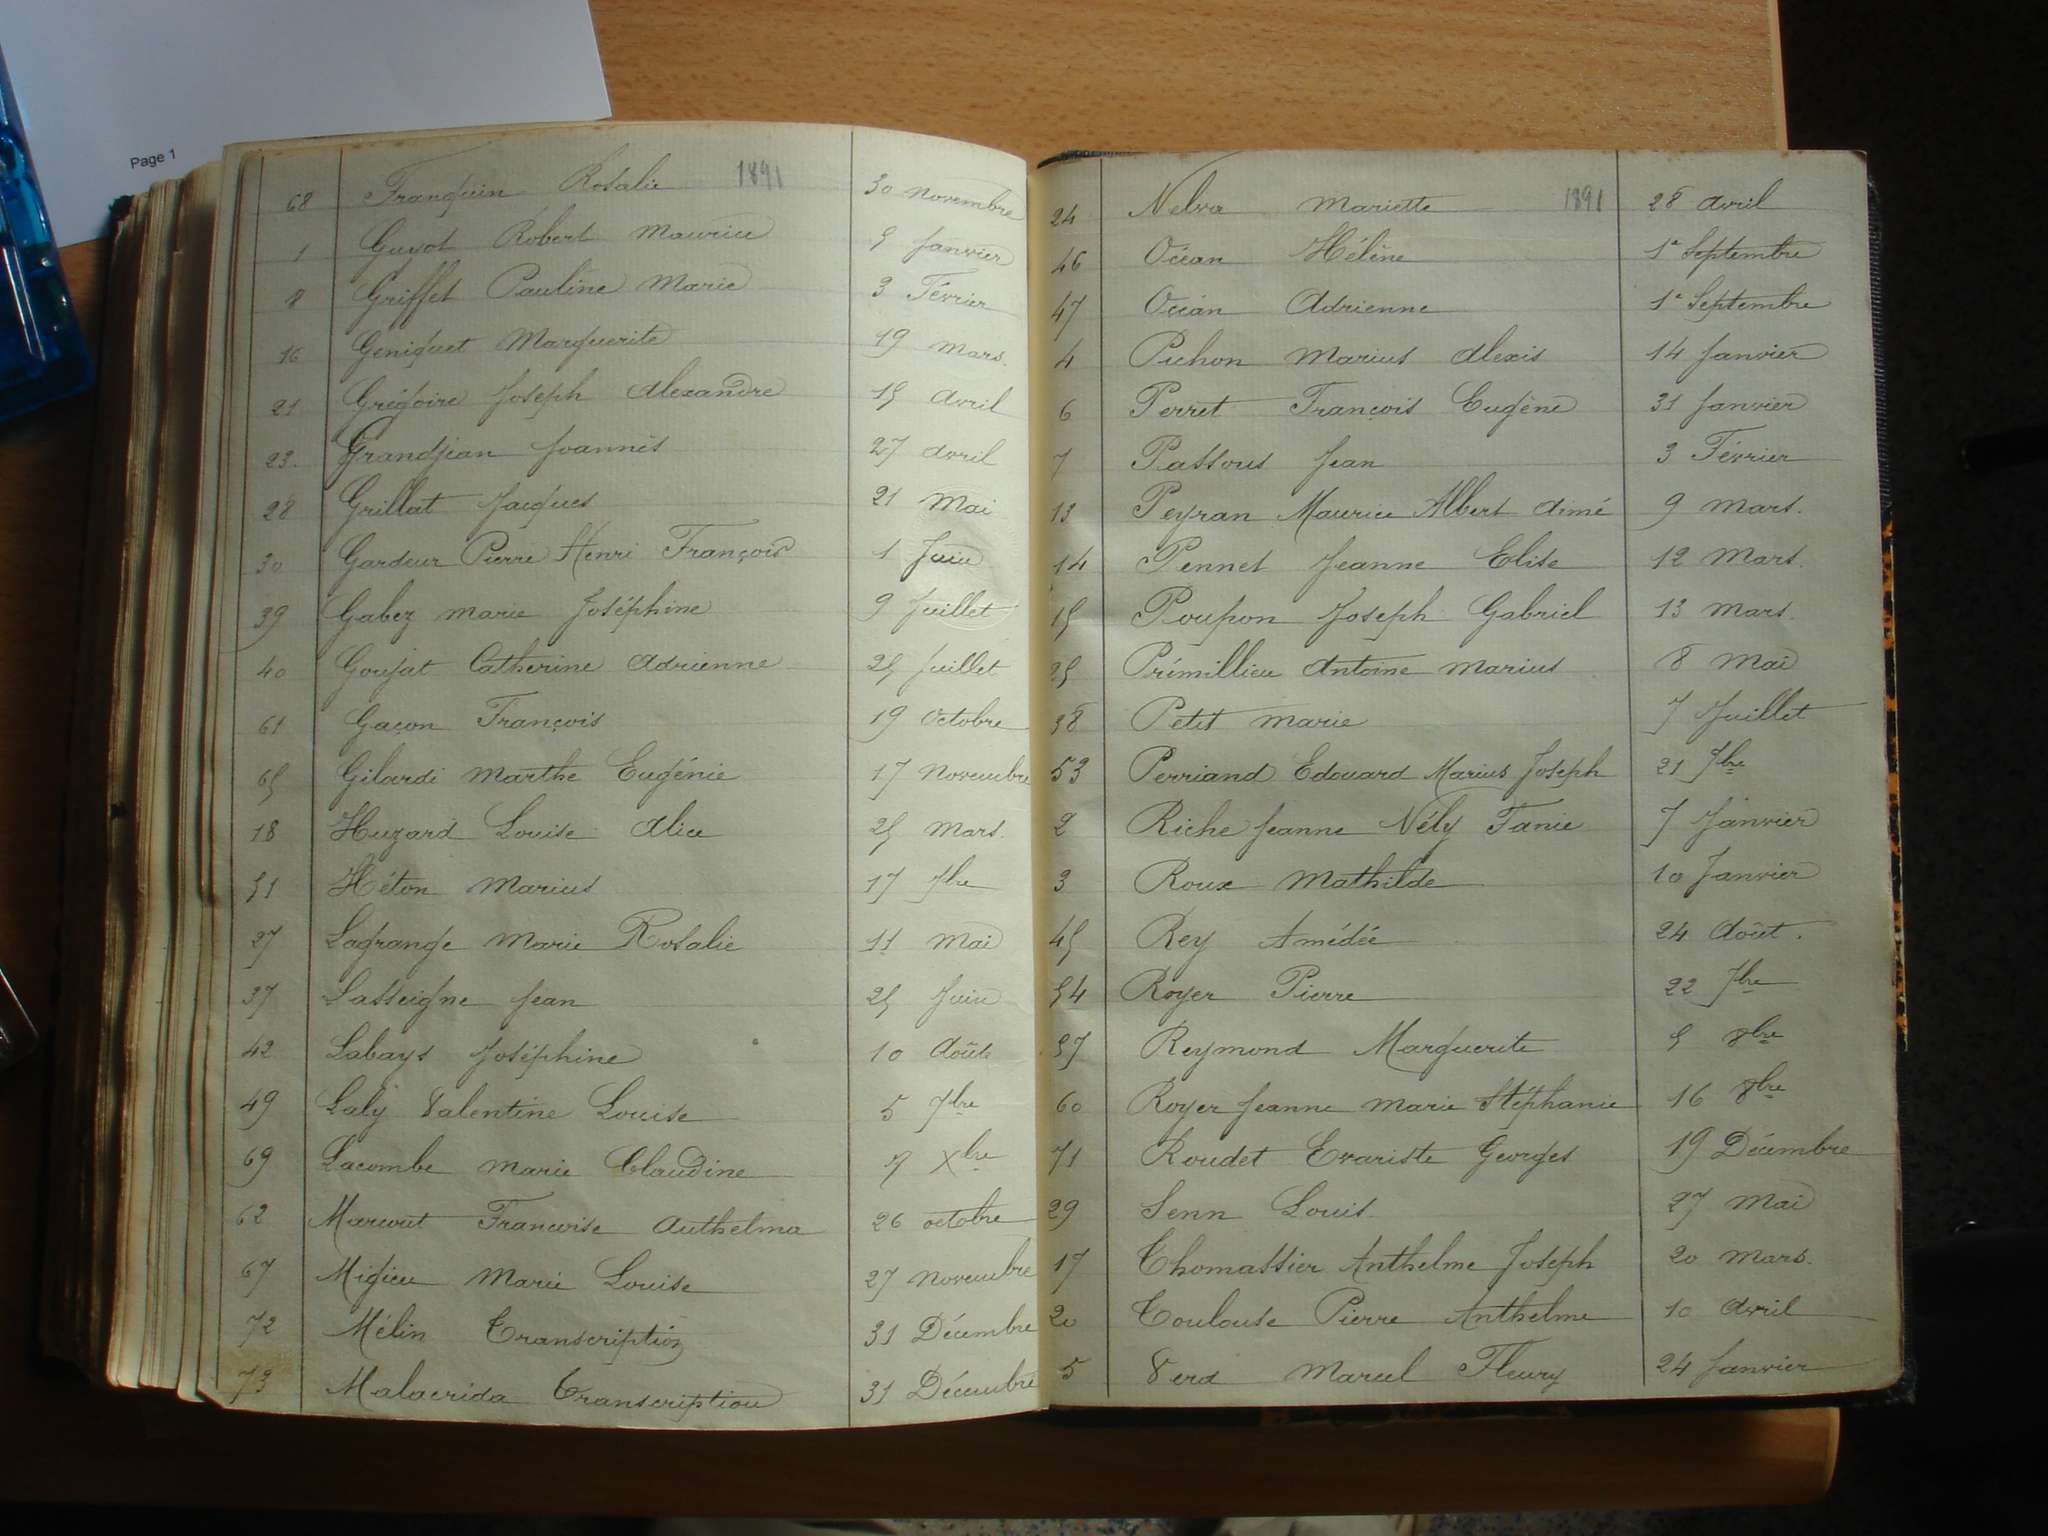 Page 1
1891
68 Franquin Rosalie 30 Novembre
1 Guyot Robert Maurice 5 Janvier
8 Griffet Pauline Marie 3 Février
16 Geniquet Marguerite 19 Mars.
21 Grégoire Joseph Alexandre 15 Avril
23. Grandjean Joannès 27 Avril
28 Grillat Jacques 21 Mai
30 Gardeur Pierre Henri François 1 Juin
39 Gabez Marie Joséphine 9 Juillet
40 Goujat Catherine Adrienne 25 Juillet
61 Gaçon François 19 Octobre
65 Gilardi Marthe Eugénie 17 Novembre
18 Huzard Louise Alice 25 Mars.
51 Héton Marius 17 7bre
27 Lagrange Marie Rosalie 11 Mai
37 Lasseigne Jean 25 Juin
42 Labays Joséphine 10 Août
49 Laly Valentine Louise 5 7bre
69 Lacombe Marie Claudine 7 Xbre
62 Marcout Francoise Anthelma 26 octobre
67 Migieu Marie Louise 27 Novembre
72 Mélin Transcription 31 Décembre
73 Malacrida Transcription 31 Décembre
1891
24 Nelva Mariette 28 Avril
46 Océan Hélène 1e Septembre
47 Océan Adrienne 1e Septembre
4 Pichon Marius Alexis 14 Janvier
6 Perret François Eugène 31 Janvier
7 Passous Jean 3 Février
13 Peyran Maurice Albert Aimé 9 Mars.
14 Pennet Jeanne Elise 12 Mars.
15 Poupon Joseph Gabriel 13 Mars.
25 Prémillieu Antoine Marius 8 Mai
38 Petit Marie 7 Juillet
53 Perriand Edouard Marius Joseph 21 7bre
2 Riche Jeanne Nély Fanie 7 Janvier
3 Roux Mathilde 10 Janvier
45 Rey Amédée 24 Août.
54 Royer Pierre 22 7bre
57 Reymond Marguerite 5 8bre
60 Royer Jeanne Marie Stéphanie 16 8bre
71 Roudet Evariste Georges 19 Décembre
29 Senn Louis. 27 Mai
17 Thomassier Anthelme Joseph 20 Mars.
20 Toulouse Pierre Anthelme 10 Avril
5 Verd Marcel Fleury 24 Janvier